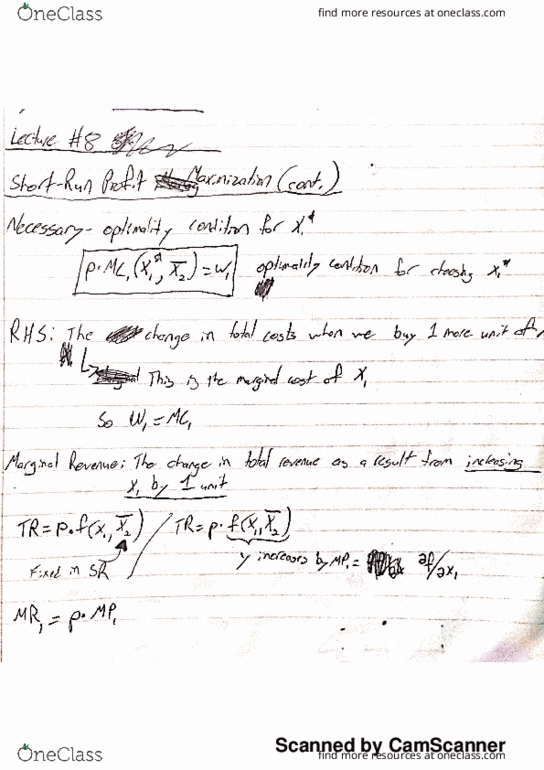 OneClass
find more resources at oneclass.com
Lecture #8
Short-Run Profit Maximization (cont.)
Necessary - optimality condition for x₁*
p·MC₁(x₁*, x̄₂) = w₁ optimality condition for choosing x₁*
RHS: The change in total costs when we buy 1 more unit of x₁
This is the marginal cost of x₁
So W₁ = MC₁
Marginal Revenue: The change in total revenue as a result from increasing
x₁ by 1 unit
TR = p·f(x₁, x̄₂) / TR = p·f(x₁, x̄₂)
Fixed in SR y increases by MP₁ = ∂f/∂x₁
MR₁ = p·MP₁
Scanned by CamScanner
OneClass
find more resources at oneclass.com